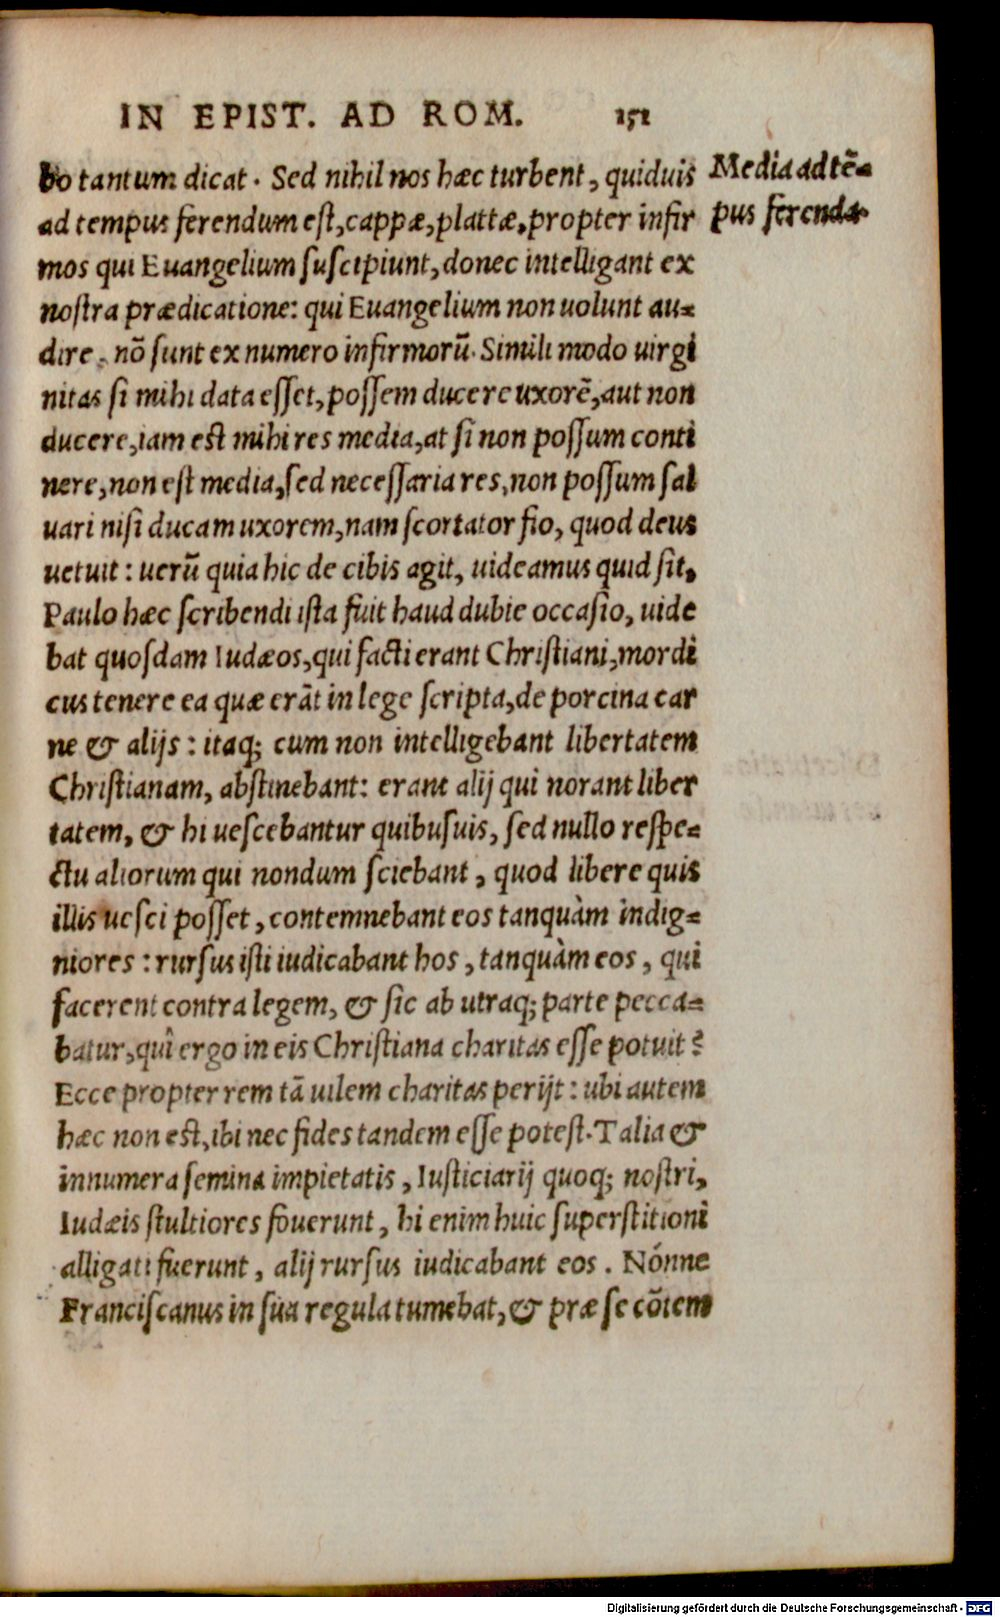 IN EPIST. AD ROM. 151
bo tantum dicat. Sed nihil nos hæc turbent, quiduis
ad tempus ferendum est, cappæ, plattæ, propter infir
mos qui Euangelium suscipiunt, donec intelligant ex
nostra prædicatione: qui Euangelium non uolunt au=
dire, nō sunt ex numero infirmorū. Simili modo uirgi
nitas si mihi data esset, possem ducere uxorē, aut non
ducere, iam est mihi res media, at si non possum conti
nere, non est media, sed necessaria res, non possum sal
uari nisi ducam uxorem, nam scortator fio, quod deus
uetuit: uerū quia hic de cibis agit, uideamus quid sit.
Paulo hæc scribendi ista fuit haud dubie occasio, uide
bat quosdam Iudæos, qui facti erant Christiani, mordi
cus tenere ea quæ erāt in lege scripta, de porcina car
ne & alijs: itaq; cum non intelligebant libertatem
Christianam, abstinebant: erant alij qui norant liber
tatem, & hi uescebantur quibusuis, sed nullo respe=
ctu aliorum qui nondum sciebant, quod libere quis
illis uesci posset, contemnebant eos tanquàm indig=
niores: rursus isti iudicabant hos, tanquàm eos, qui
facerent contra legem, & sic ab utraq; parte pecca=
batur, quî ergo in eis Christiana charitas esse potuit?
Ecce propter rem tā uilem charitas perijt: ubi autem
hæc non est, ibi nec fides tandem esse potest. Talia &
innumera semina impietatis, Iusticiarij quoq; nostri,
Iudæis stultiores fouerunt, hi enim huic superstitioni
alligati fuerunt, alij rursus iudicabant eos. Nónne
Franciscanus in sua regula tumebat, & præ se cōtem
Media ad tē=
pus ferenda.
Digitalisierung gefördert durch die Deutsche Forschungsgemeinschaft - DFG